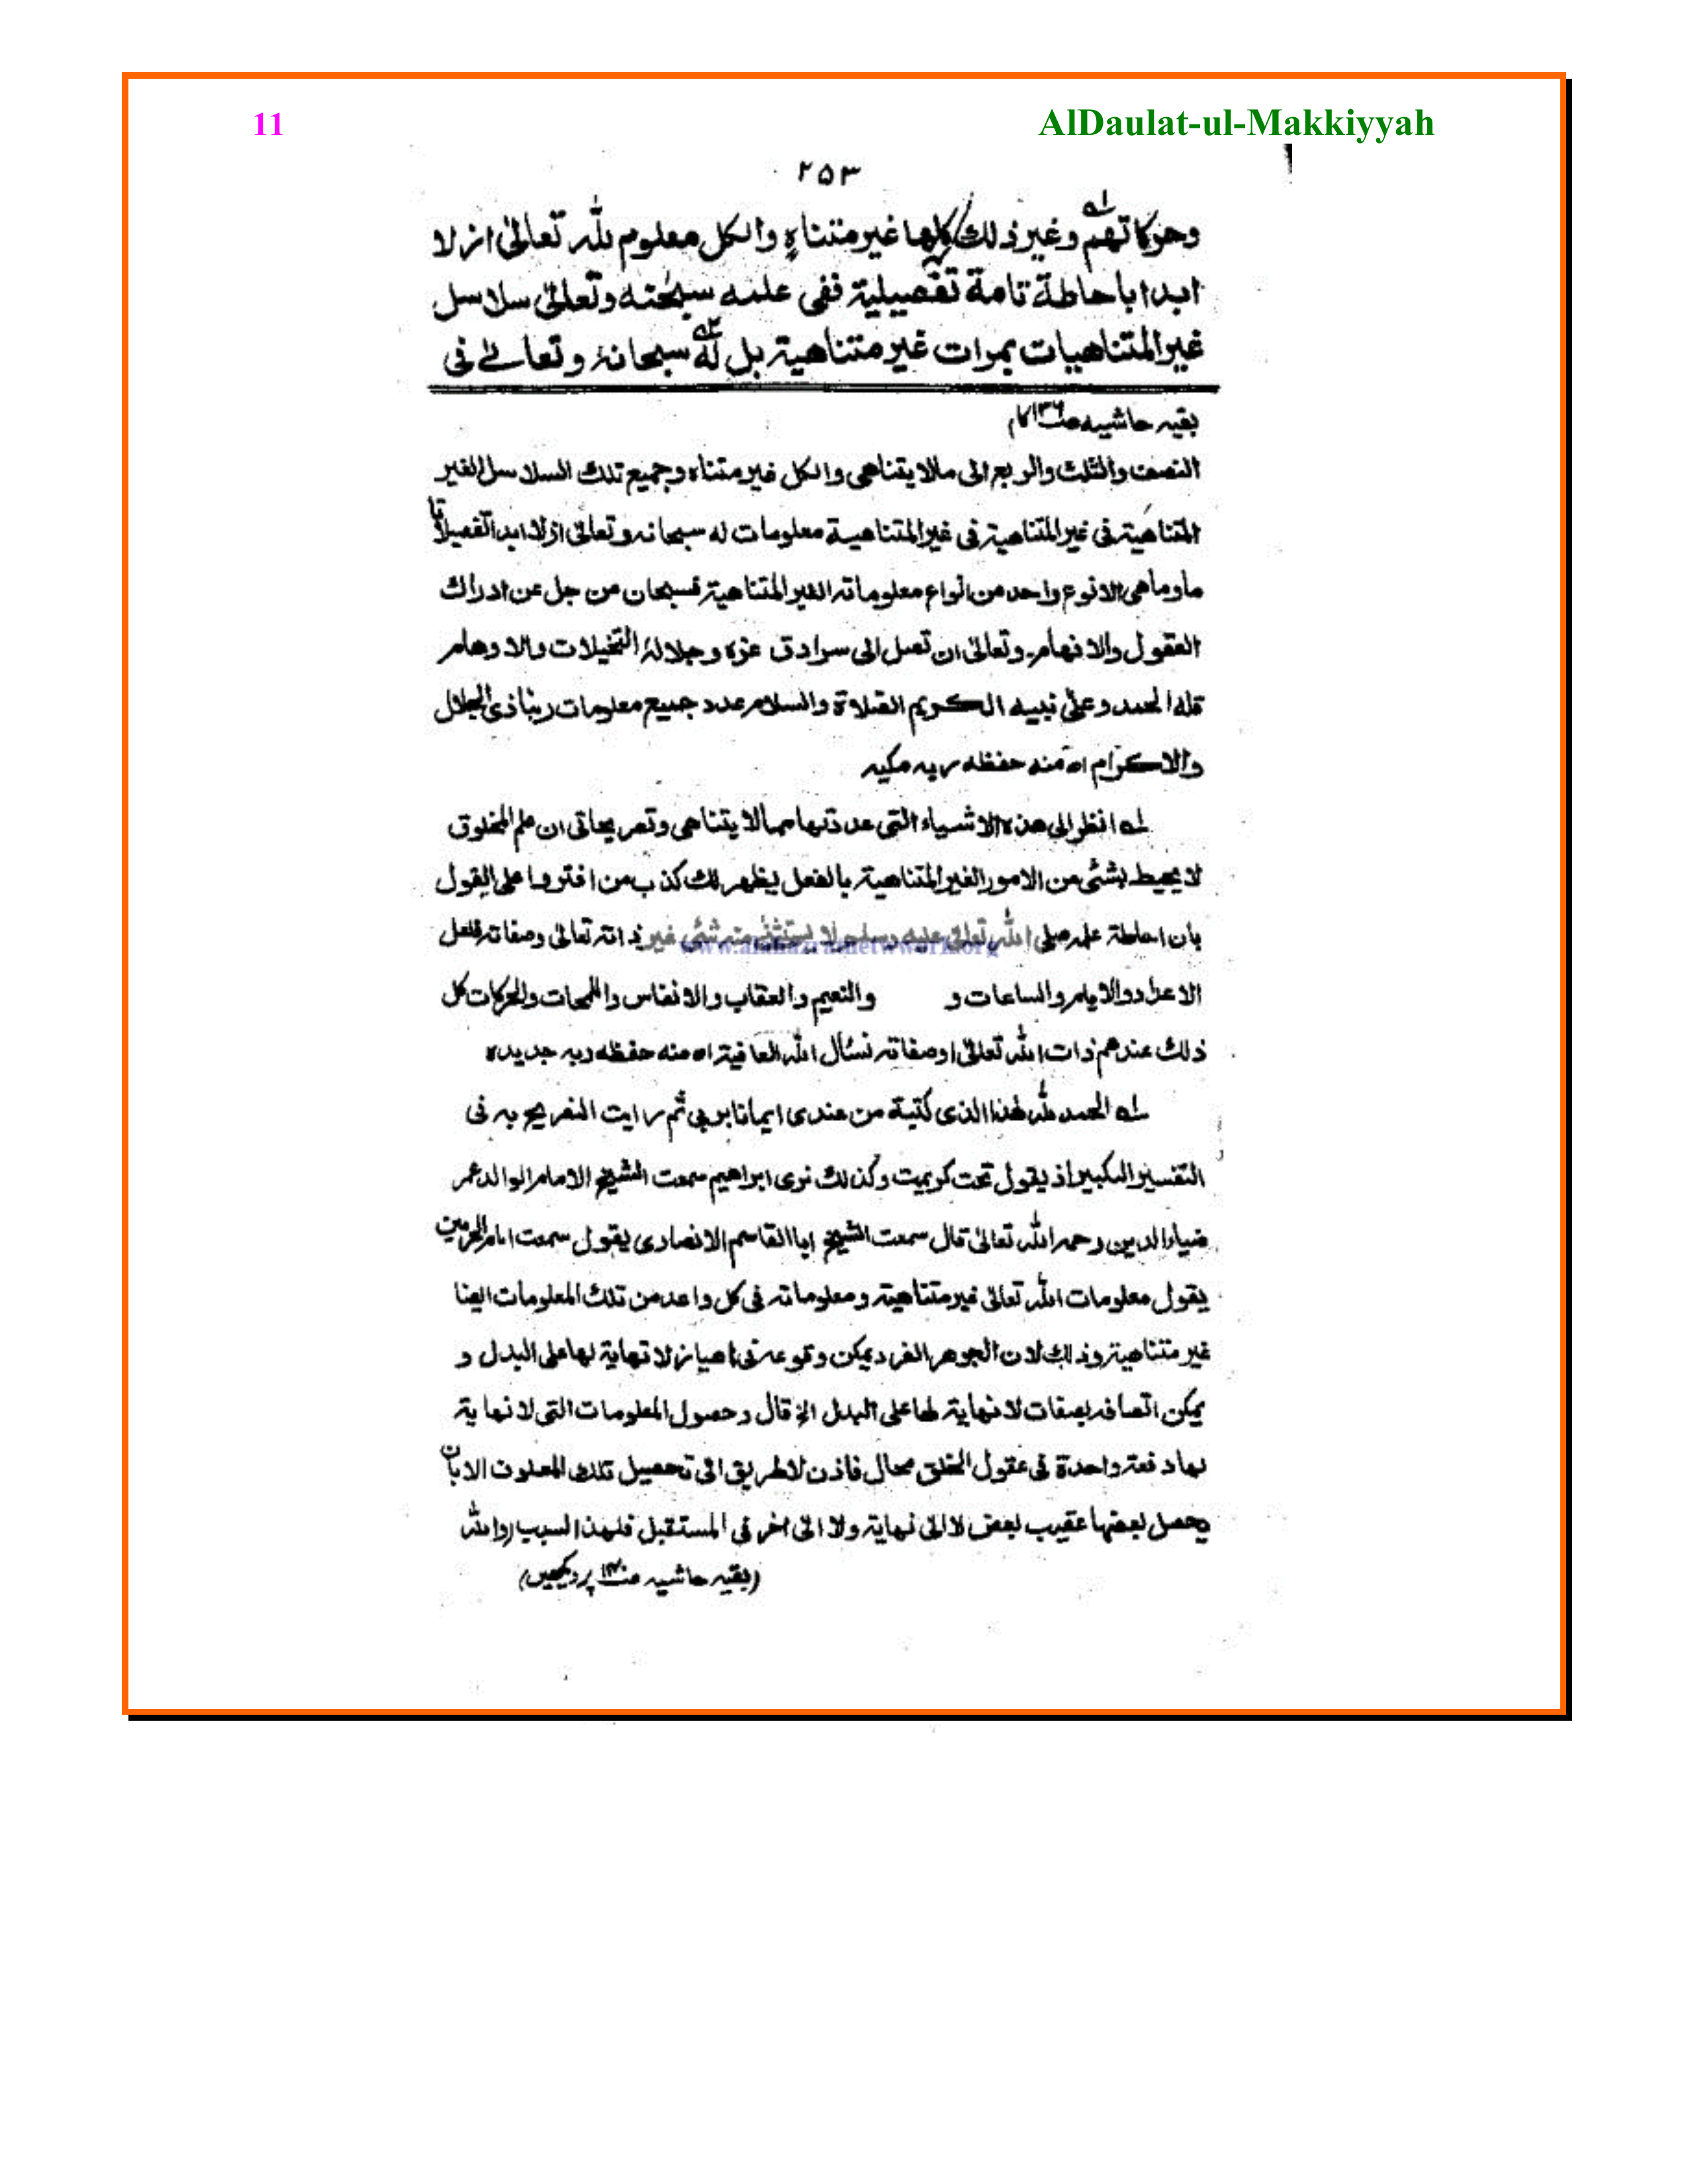 11
AlDaulat-ul-Makkiyyah
۲۵۳
وحركاتهم وغير ذلك كلها غير متناهٍ والكل معلوم لله تعالیٰ ازلا
ابدا باحاطة تامة تفصيلية ففی علمه سبحٰنه وتعالیٰ سلاسل
غير المتناهيات بمرات غير متناهية بل له سبحانهٗ وتعالےٰ فی
بقیہ حاشیہ کا
النصف والثلث والربع الی مالا یتناهی والکل غیر متناہ وجمیع تلك السلاسل الغیر
المتناهیة فی غیر المتناهیة فی غیر المتناهیة معلومات له سبحانه وتعالیٰ ازلا ابدا تفصیلا تا
ما وما هی الا نوع واحد من انواع معلوماته الغیر المتناهیة فسبحان من جل عن ادراك
العقول والافهام وتعالیٰ ان تصل الی سرادق عزہ وجلالهٖ التخیلات والاوهام
فله الحمد وعلیٰ نبیه الکریم الصلاة والسلام عدد جمیع معلومات ربنا ذی الجلال
والاکرام اه منه حفظه ربه مکیه
لـه انظر الی هذہ الاشیاء التی عددتها مما لا یتناهی وتصریحاتی ان علم المخلوق
لا یحیط بشئی من الامور الغیر المتناهیة بالفعل یظهر لك کذب من افتروا علی القول
بان احاطة علمه صلی الله تعالیٰ علیه وسلم لا یستثنیٰ منه شئی غیر ذاته تعالیٰ وصفاته فلعل
www.alahazratnetwork.org
الاعداد والایام والساعات و والنعیم والعقاب والانفاس واللمحات والحرکات کل
ذلك عندهم ذات الله تعالیٰ اوصفاته نسئال الله العافیة اه منه حفظه ربه جدیدہ
لـه الحمد لله هذا الذی کتبة من عندی ایمانا بربی ثم رایت التصریح به فی
التفسیر الکبیر اذ یقول تحت کریمیت وکذلك نری ابراهیم سمعت الشیخ الامام الوالد عمر
ضیاء الدین رحمه الله تعالیٰ قال سمعت الشیخ ابا القاسم الانصاری یقول سمعت امام الحرمین
یقول معلومات الله تعالیٰ غیر متناهیة ومعلوماته فی کل واحد من تلك المعلومات ایضا
غیر متناهیة وذلك لان الجوهر الفرد یمکن وقوعه فی احیاز لا نهایة لها علی البدل و
یمکن اتصافه بصفات لا نهایة لها علی البدل الخ قال وحصول المعلومات التی لا نهایة
لها دفعة واحدة فی عقول الخلق محال فاذن لا طریق الی تحصیل تلك المعلومت الا بان
یحصل بعضها عقیب بعض لا الی نهایة ولا الی اخر فی المستقبل فلهذا السبب (والله
(بقیہ حاشیہ پر دیکھیں)